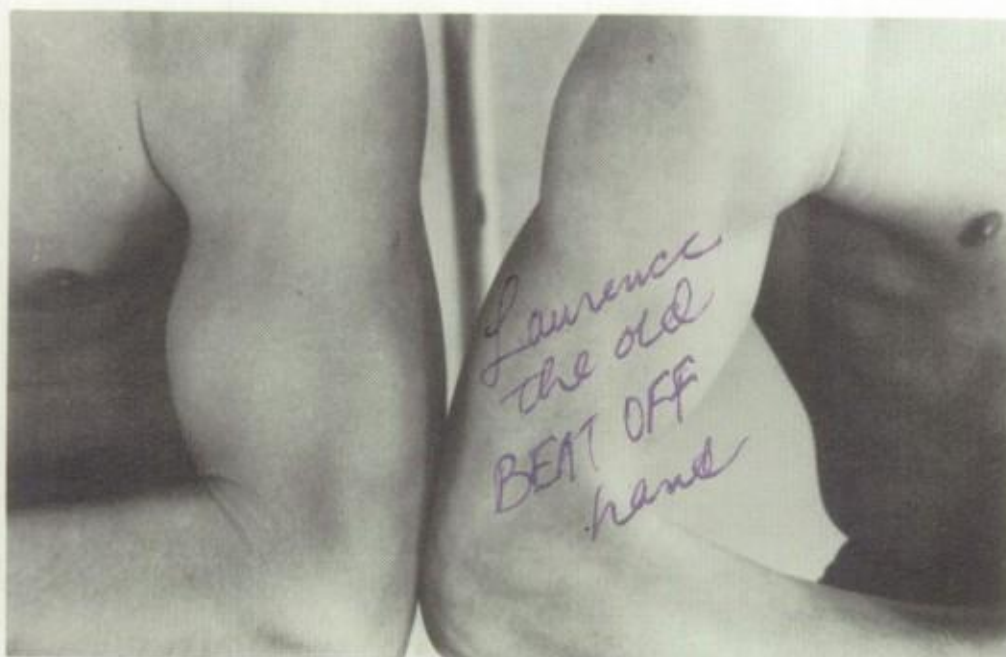 Laurence
the old
BEAT OFF
hand